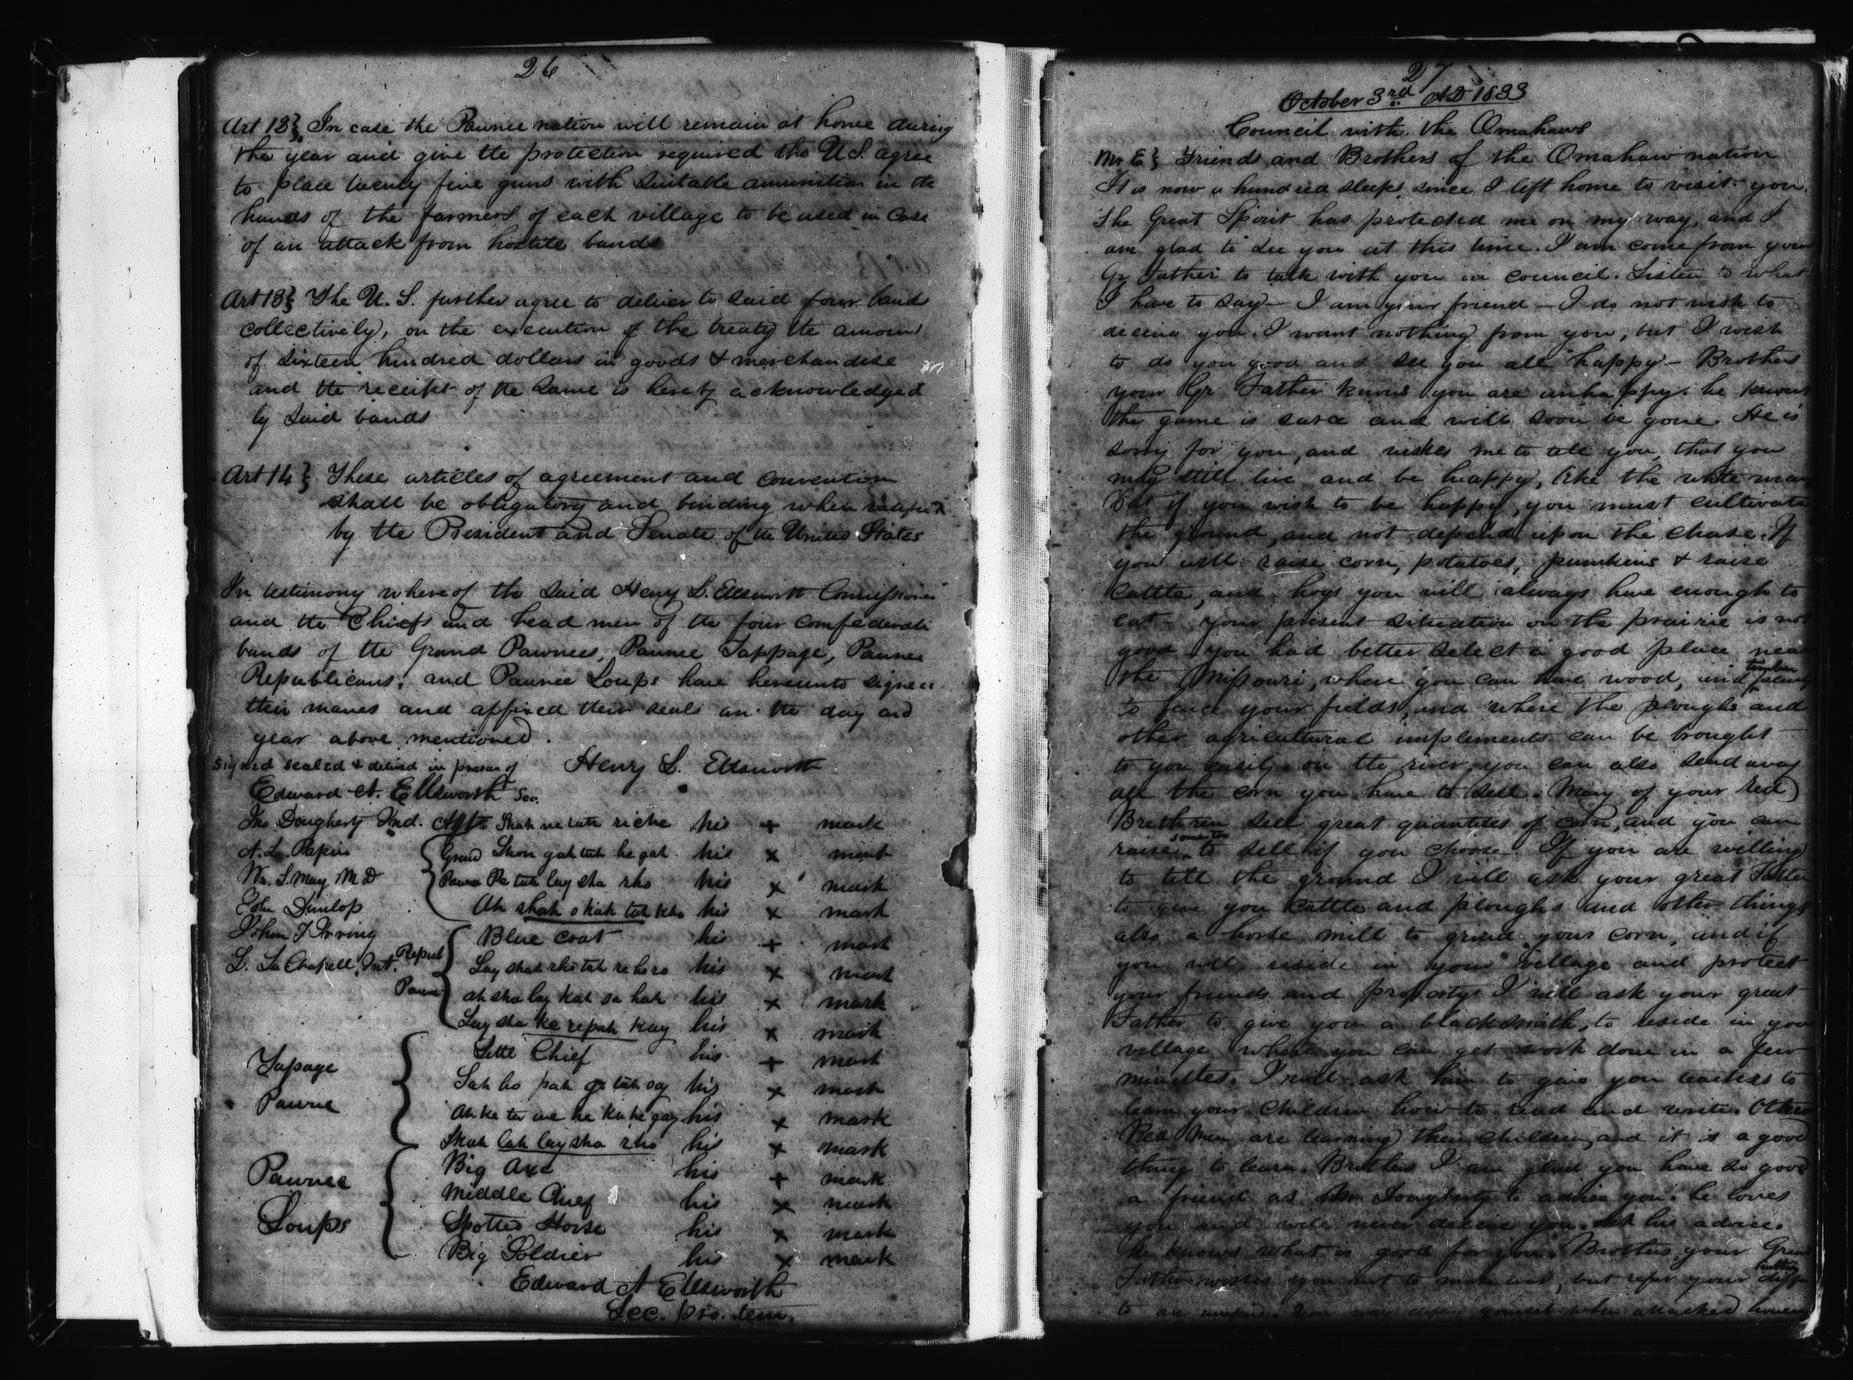 26
Art 12} In case the Pawnee nation will remain at home during
the year and give the protection required the U.S. agree
to place twenty five guns with suitable amunition in the
hands of the farmers of each village to be used in case
of an attack from hostile bands
Art 13} The U. S. further agree to deliver to said four bands
collectively, on the execution of the treaty the amount
of sixteen hundred dollars in goods & merchandise
and the receipt of the same is hereby acknowledged
by said bands
Art 14} These articles of agreement and convention
shall be obligatory and binding when ratified
by the President and Senate of the United States
In testimony whereof the said Henry L. Ellsworth Commissioner
and the Chiefs and head men of the four confederate
bands of the Grand Pawnees, Pawnee Tappage, Pawnee
Republicans, and Pawnee Loups have hereunto signed
their manes and affixed their seals on the day and
year above mentioned.
Signed sealed & delivd in presence of Henry L. Ellsworth
Edward A. Ellsworth Sec.
Jno Dougherty Ind. Agt. Shah re lah riche his + mark
A. L. Papin Grand Shon gah tuh he gah his x mark
Wm. S. May M D Pawnee Pe tah lay sha rho his x mark
John Dunlop Ah shah o kah tah kho his x mark
John T Irving Blue Coat his + mark
L. La Chapell, Int. Repub Lay shah rho tah re ho ro his x mark
Pawnee ah sha lay kah sa hah his x mark
Lay sha ke repah kay his x mark
Little Chief his + mark
Tapage Lah ho pah go lah sog his x mark
Pawne Ah ke tu we he ku he gay his x mark
Skah lah lay sha rho his x mark
Big Axe his + mark
Pawnee Middle Chief his x mark
Loups Spotted Horse his x mark
Big Soldier his x mark
Edward A Ellsworth
Sec. pro. tem.
27
October 3rd AD 1833
Council with the Omahaws
Mr E} Friends and Brothers of the Omahaw nation
It is now a hundred sleeps since I left home to visit you.
The Great Spirit has protected me on my way, and I
am glad to see you at this time. I am come from your
Gr Father to talk with you in council. Listen to what
I have to say— I am your friend — I do not wish to
deceive you. I want nothing from you, but I wish
to do you good and see you all happy— Brothers
your Gr Father knows you are unhappy. he knows
the game is scarce and will soon be gone. He is
sorry for you, and wishes me to tell you, that you
may still live and be happy, like the white man
But if you wish to be happy, you must cultivate
the ground, and not depend upon the chase. If
you will raise corn, potatoes, pumkins & raise
Cattle, and hogs you will always have enough to
eat— your present situation on the prairie is not
good you had better select a good place near
the Missouri, where you can have wood, and timber plenty
to fence your fields, and where the ploughs and
other agricultural implements can be brought
to you easily. on the river you can also send away
all the corn you have to sell. Many of your red
Brethren sell great quantities of corn, and you can
raise some too to sell if you choose. If you are willing
to till the ground I will ask your great Father
to give you Cattle and ploughs and other things
also a horse mill to grind your corn, and if
you will reside in your village and protect
your friends and property I will ask your great
Father to give you a blacksmith, to reside in your
village where you can get work done in a few
minutes. I will ask him to give you teachers to
learn your children how to read and write. Other
Red Men are learning their children, and it is a good
thing to learn. Brothers I am glad you have so good
a friend as Mr Dougherty to advise you. he loves
you and will never deceive you. Ask his advice.
he knows what is good for you. Brothers your Great
Father wishes you not to make war, but refer your diff
to an umpire. You may defend yourself when attacked